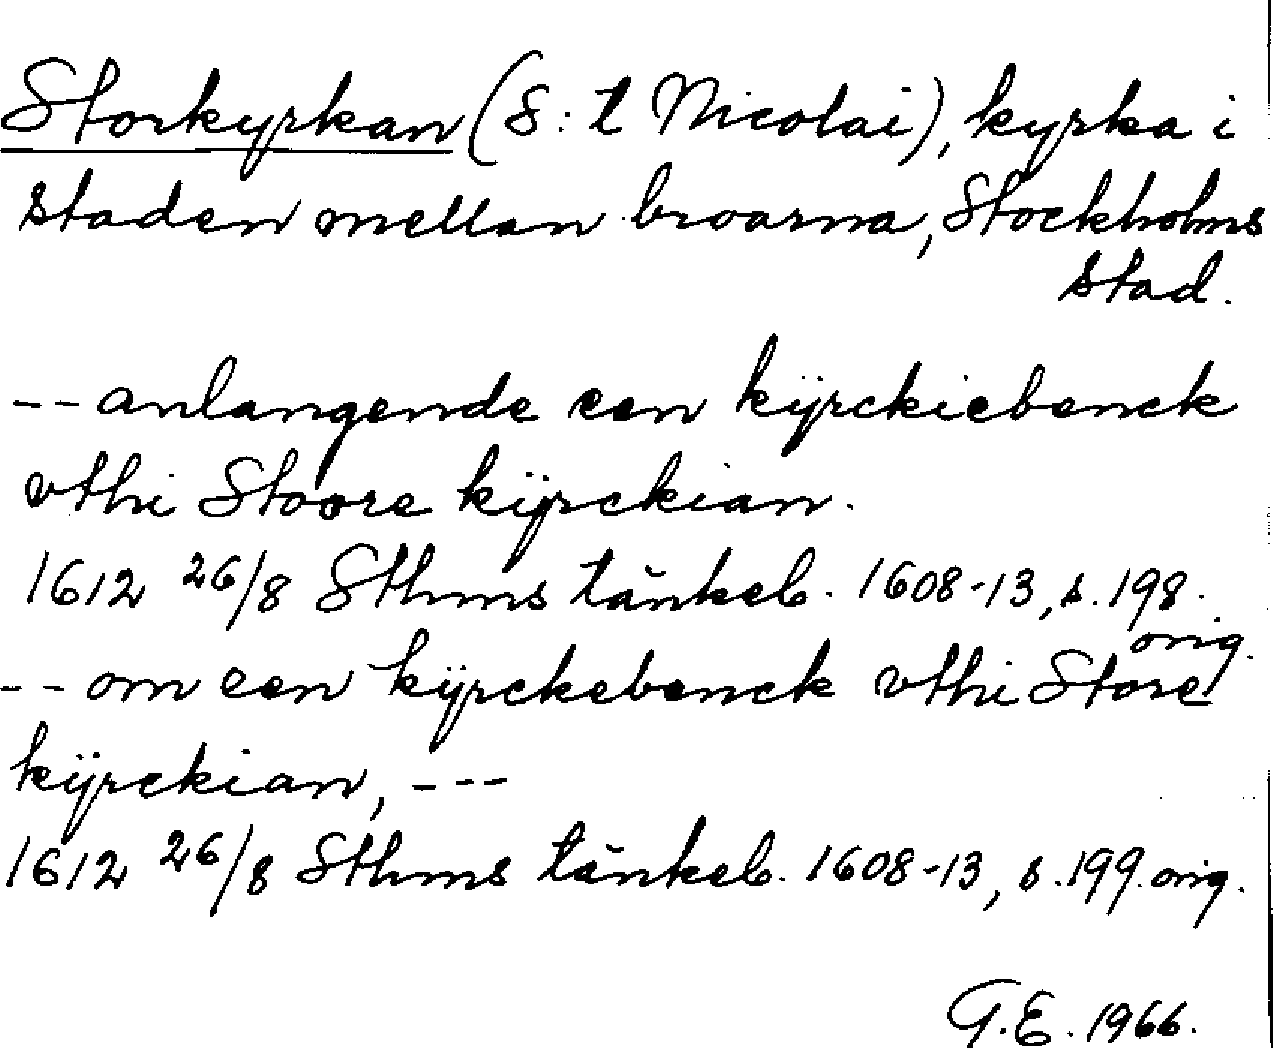 Storkyrkan (S:t Nicolai), kyrka i
staden mellan broarna, Stockholms
stad.
-- anlangende een kÿrckiebenck
vthi Stoore kÿrckian.
1612 26/8 Sthms tänkeb. 1608-13, s. 198.
orig.
-- om een kÿrckebenck vthi Store
kÿrckian, ---
1612 26/8 Sthms tänkeb. 1608-13, s. 199. orig.
G.E. 1966.